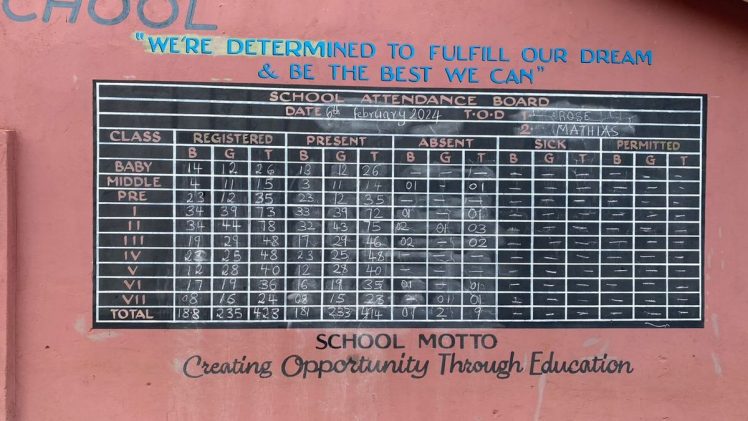 CHOOL
"WE'RE DETERMINED TO FULFILL OUR DREAM
& BE THE BEST WE CAN"
SCHOOL ATTENDANCE BOARD
DATE 6th february 2024 T.O.D 1. ROSE
2. MATHIAS
CLASS REGISTERED PRESENT ABSENT SICK PERMITTED
B G T B G T B G T B G T B G T
BABY 14 12 26 12 26 — — — — — — — — —
MIDDLE 4 11 15 3 11 14 01 — 01 — — — — — —
PRE 23 12 35 23 12 35 — — — — — — — — —
I 34 39 73 33 39 72 01 — 01 — — — — — —
II 34 44 78 32 43 75 02 01 03 — — — — — —
III 19 29 48 17 29 46 02 — 02 — — — — — —
IV 23 25 48 23 25 48 — — — — — — — — —
V 12 28 40 12 28 40 — — — — — — — — —
VI 17 19 36 16 19 35 01 — 01 — — — — — —
VII 08 16 24 08 15 23 — 01 01 — — — — — —
TOTAL 188 235 423 181 233 414 07 2 9 — — — — — —
SCHOOL MOTTO
Creating Opportunity Through Education